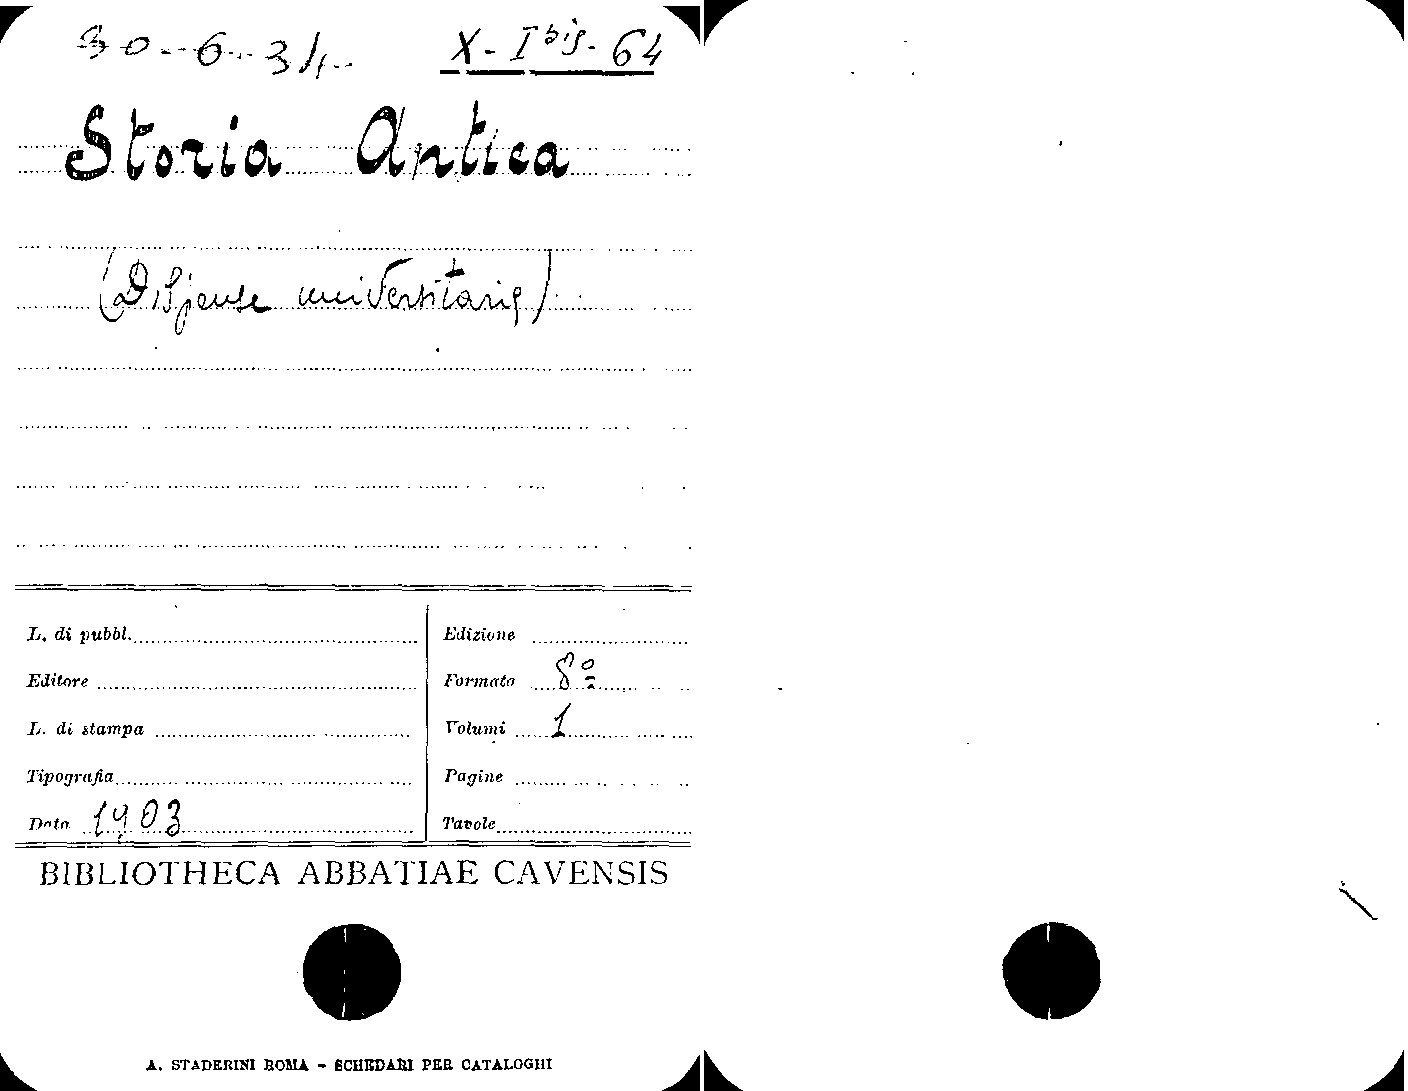 30-6-34 X-I bis-64
Storia Antica
(Dispense universitarie)
L. di pubbl. Edizione
Editore Formato 8º
L. di stampa Volumi 1
Tipografia Pagine
Data 1903 Tavole
BIBLIOTHECA ABBATIAE CAVENSIS
A. STADERINI ROMA - SCHEDARI PER CATALOGHI